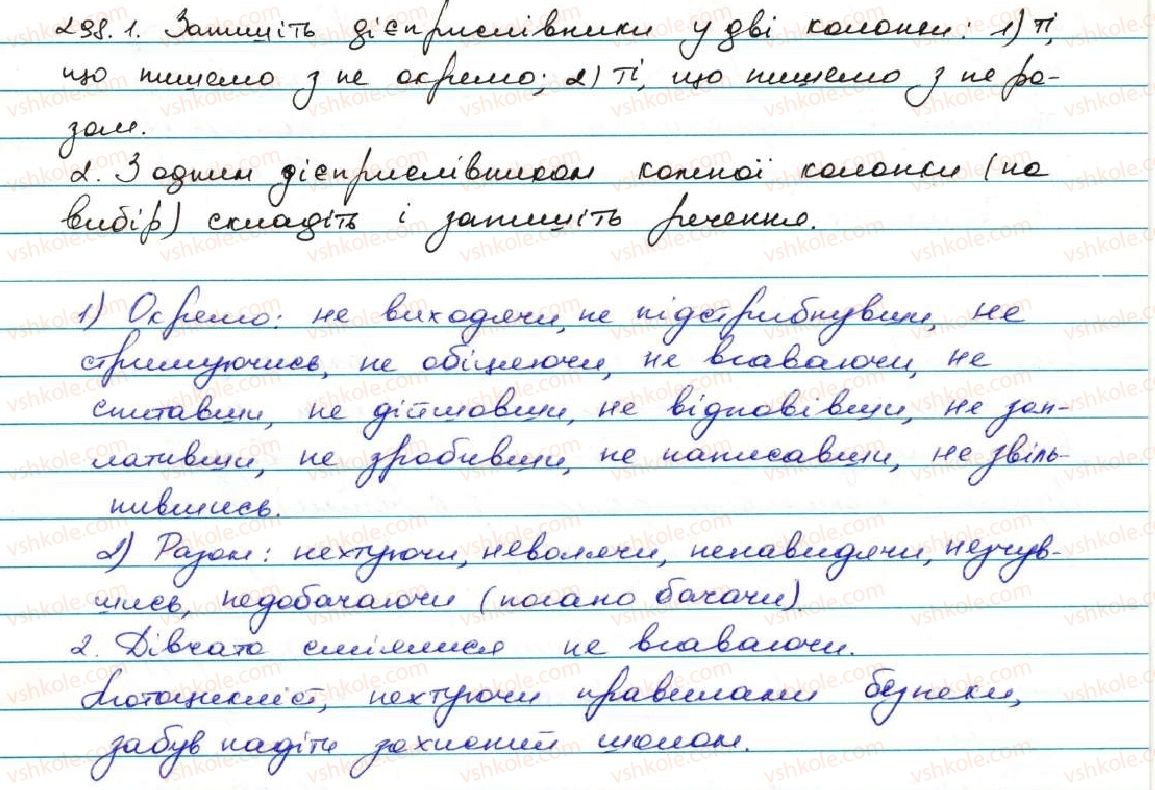 298.1. Запишіть дієприслівники у дві колонки: 1) ті,
що пишемо з не окремо; 2) ті, що пишемо з не ра-
зом.
2. З одним дієприслівником кожної колонки (на
вибір) складіть і запишіть речення.
1) Окремо: не виходячи, не підстрибнувши, не
стримуючись, не обіцяючи, не вгаваючи, не
спитавши, не дійшовши, не відповівши, не зап-
лативши, не зробивши, не написавши, не звіль-
нившись.
2) Разом: нехтуючи, неволячи, ненавидячи, незчув-
шись, недобачаючи (погано бачачи)
2. Дівчата сміялися не вгаваючи.
Мотоцикліст, нехтуючи правилами безпеки,
забув надіти захисний шолом.